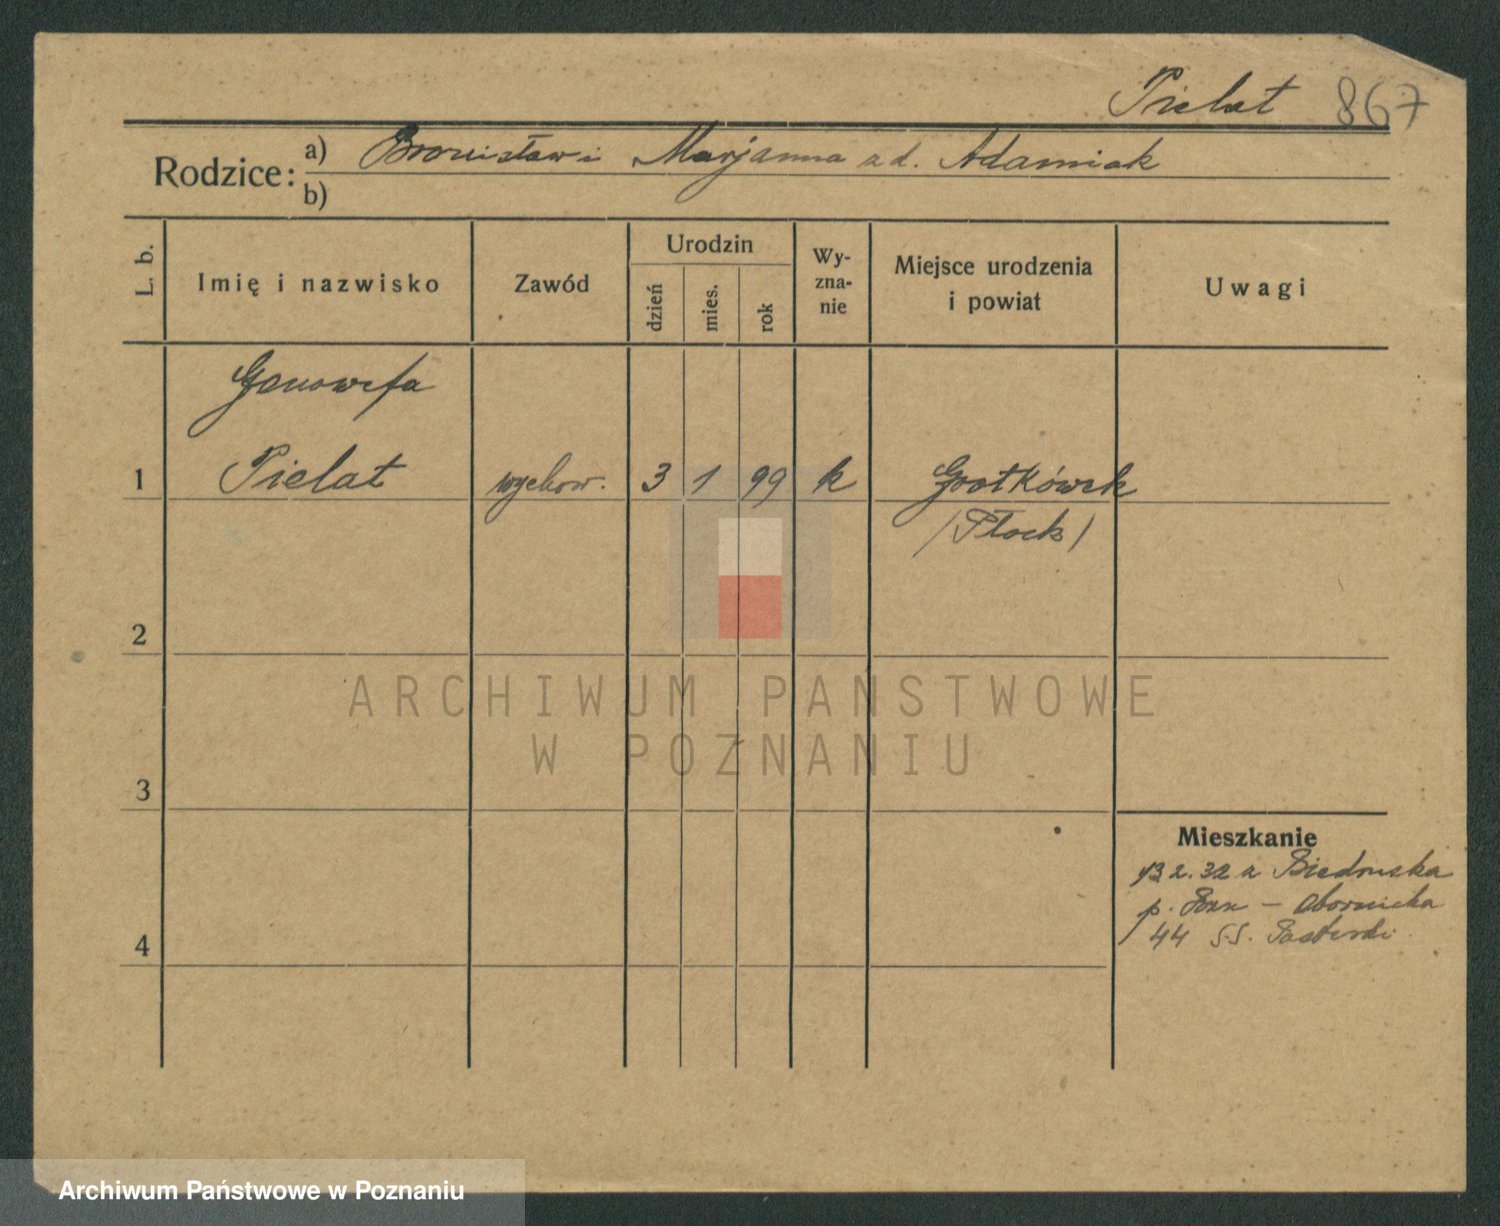 Pielat 867
Rodzice: a) Bronisław i Marjanna z d. Adamiak
b)
L. b. Imię i nazwisko Zawód Urodzin dzień mies. rok Wy-zna-nie Miejsce urodzenia i powiat Uwagi
Genowefa
1 Pielat wychow. 3 1 99 k Grotkówek
/Płock/
2
ARCHIWUM PAŃSTWOWE
W POZNANIU
3
Mieszkanie
13 2. 32 z Biedruska
p. Pozn – Obornicka
4 44 S.S.
Archiwum Państwowe w Poznaniu